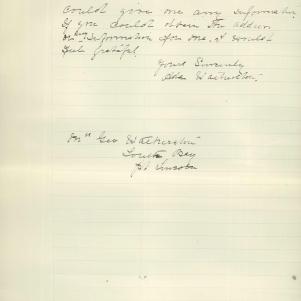 could give me any information
If you could obtain the address
or any information for me, I would
feel grateful.
Yours Sincerely
Ada Watherston
Mrs Geo Watherston
Louth Bay
Pt Lincoln